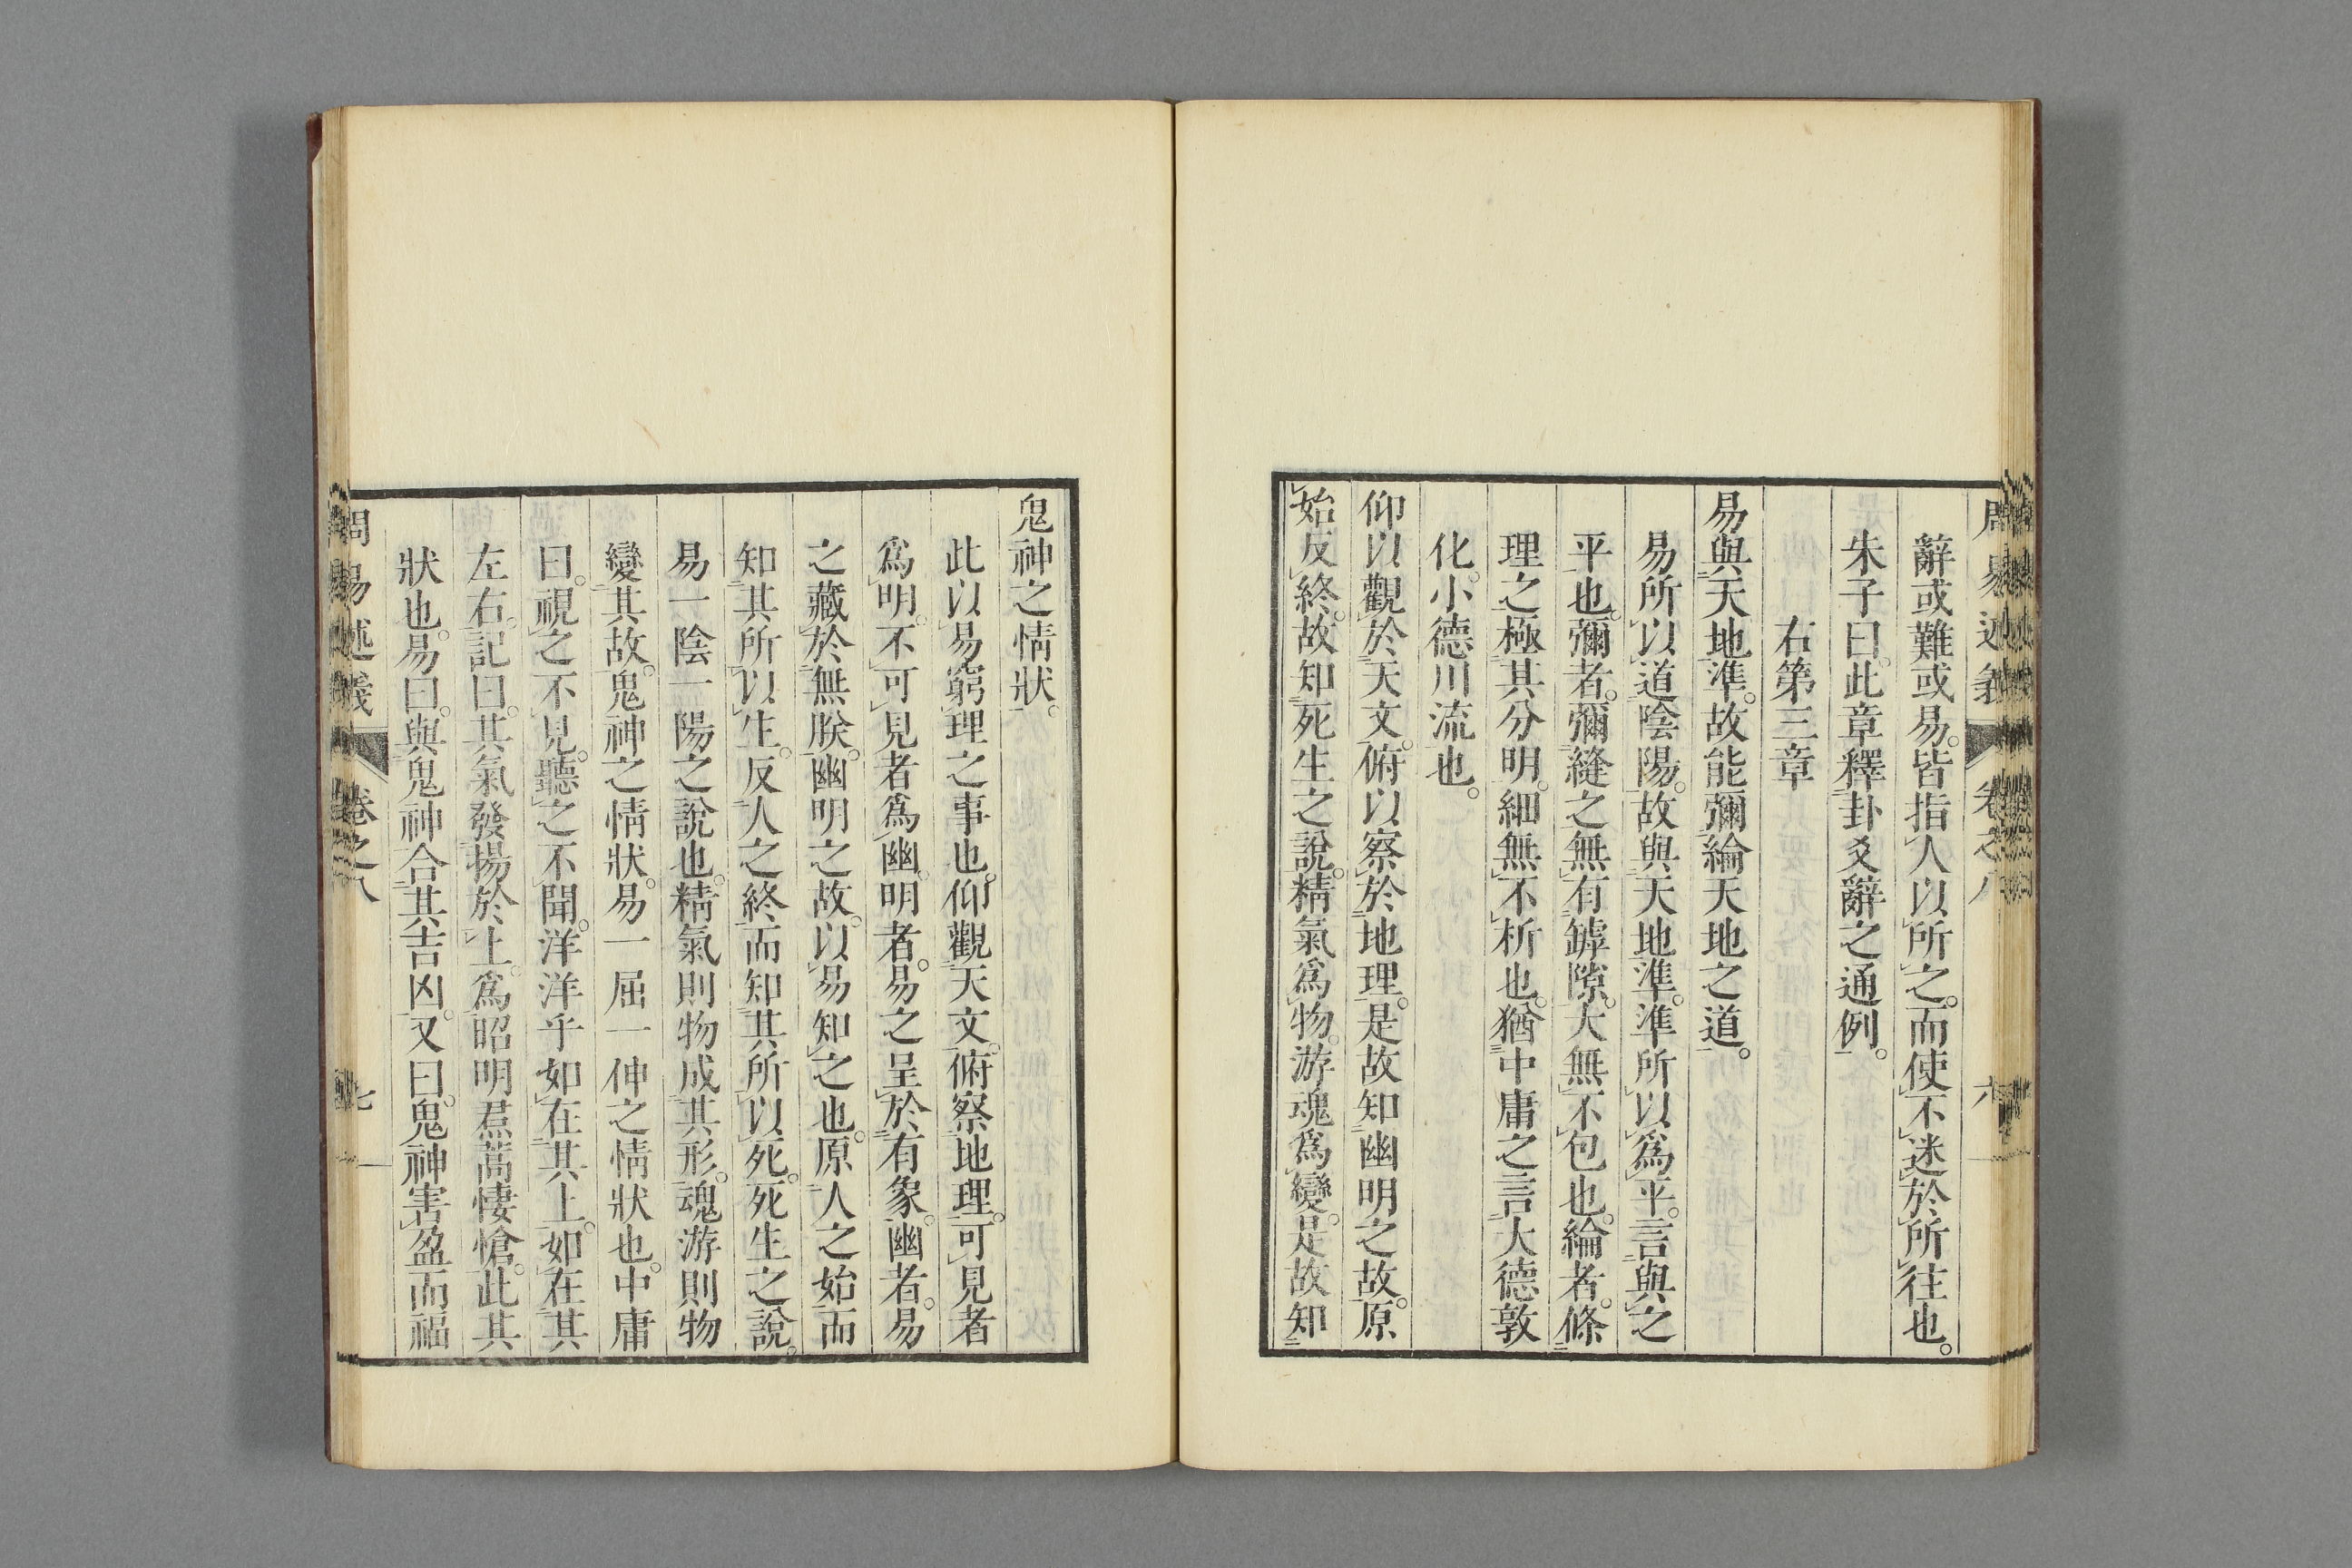 周易述義 卷之八 六
辭或難或易。皆指人以所之。而使不迷於所往也。
朱子曰。此章釋卦爻辭之通例。
右第三章
易與天地準。故能彌綸天地之道。
易所以道陰陽。故與天地準。準所以爲平。言與之
平也。彌者。彌縫之無有罅隙。大無不包也。綸者。條
理之極其分明。細無不析也。猶中庸之言大德敦
化。小德川流也。
仰以觀於天文。俯以察於地理。是故知幽明之故。原
始反終。故知死生之說。精氣爲物。游魂爲變。是故知
鬼神之情狀。
此以易窮理之事也。仰觀天文。俯察地理。可見者
爲明。不可見者爲幽。明者。易之呈於有象。幽者。易
之藏於無朕。幽明之故。以易知之也。原人之始而
知其所以生。反人之終而知其所以死。死生之說。
易一陰一陽之說也。精氣則物成其形。魂游則物
變其故。鬼神之情狀。易一屈一伸之情狀也。中庸
曰。視之不見。聽之不聞。洋洋乎如在其上。如在其
左右。記曰。其氣發揚於上。爲昭明焄蒿悽愴。此其
狀也。易曰。與鬼神合其吉凶。又曰。鬼神害盈而福
周易述義 卷之八 七